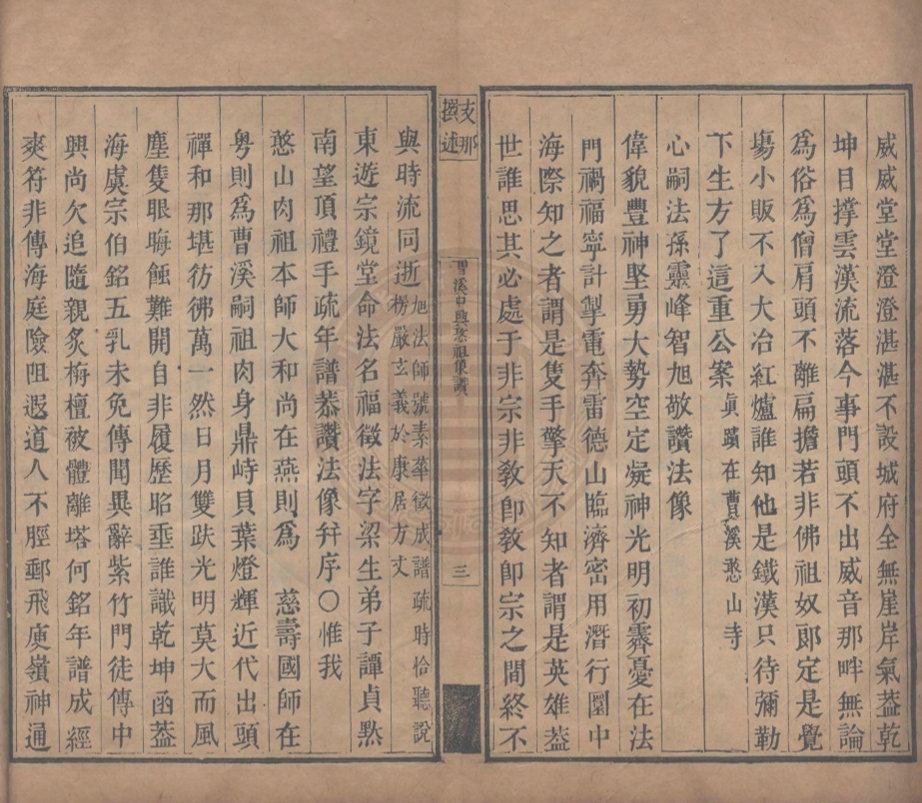 威威堂堂澄澄湛湛不設城府全無崖岸氣葢乾
坤目撐雲漢流落今事門頭不出威音那畔無論
為俗為僧肩頭不離扁擔若非佛祖奴郎定是覺
場小販不入大冶紅爐誰知他是鐵漢只待彌勒
下生方了這重公案眞蹟在曹溪憨山寺
心嗣法孫靈峰智旭敬讚法像
偉貌豐神堅勇大勢空定凝神光明初霽憂在法
門禍福寧計掣電奔雷德山臨濟密用潛行圜中
海際知之者謂是隻手擎天不知者謂是英雄葢
世誰思其必處于非宗非教卽教卽宗之間終不
支那
撰述
曹溪中興憨祖年譜
三
與時流同逝旭法師號素華徵成譜疏時恰聽說
楞嚴玄義於康居方丈
東遊宗鏡堂命法名福徵法字梁生弟子譚貞默
南望頂禮手疏年譜恭讚法像幷序〇惟我
憨山肉祖本師大和尚在燕則爲 慈壽國師在
粵則爲曹溪嗣祖肉身鼎峙貝葉燈輝近代出頭
禪和那堪彷彿萬一然日月雙趺光明莫大而風
塵隻眼晦蝕難開自非履歷昭垂誰識乾坤函葢
海虞宗伯銘五乳未免傳聞異辭紫竹門徒傳中
興尚欠追隨親炙栴檀被體離塔何銘年譜成經
爽符非傳海庭險阻遐道人不脛郵飛庾嶺神通